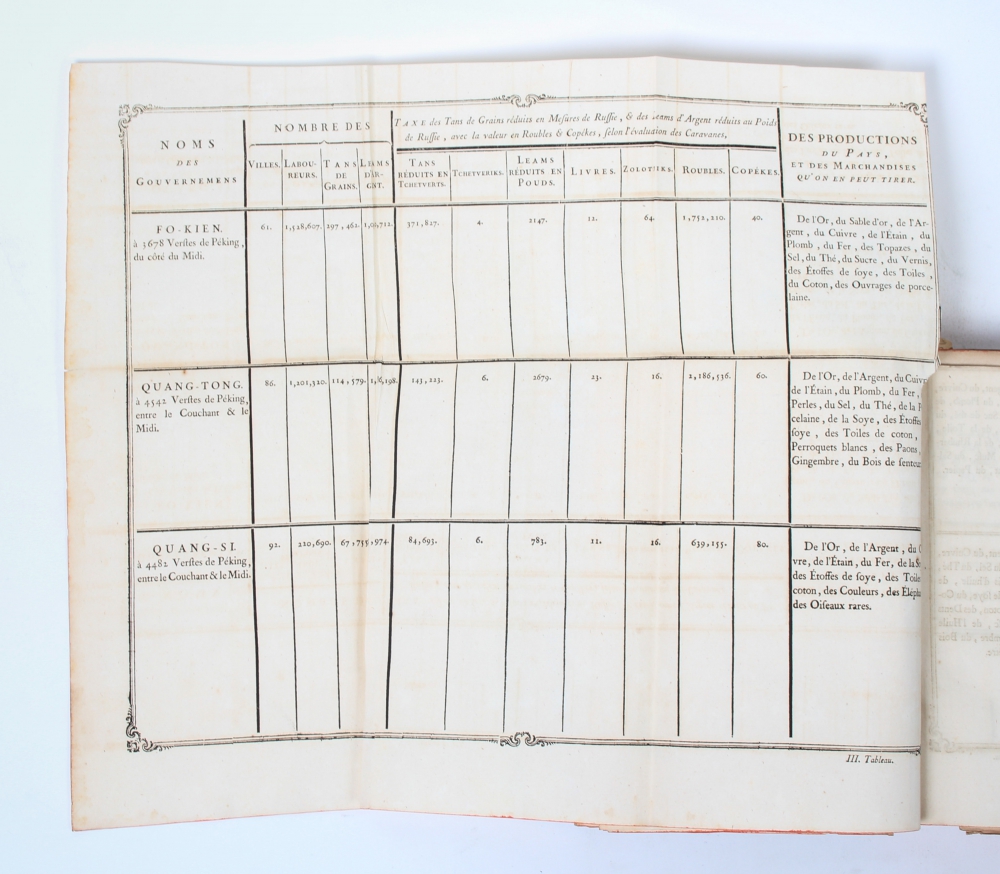 NOMS
DES
GOUVERNEMENS
NOMBRE DES
VILLES.
LABOU-
REURS.
TANS
DE
GRAINS.
D'AR-
GNT.
TAXE des Tans de Grains réduits en Mesûres de Russie, & des Leams d'Argent réduits au Poids
de Russie, avec la valeur en Roubles & Copêkes, selon l'évaluation des Caravanes,
TANS
RÉDUITS EN
TCHETVERTS.
TCHETVERIKS.
LEAMS
RÉDUITS EN
POUDS.
LIVRES.
ZOLOTNIKS.
ROUBLES.
COPÊKES.
DES PRODUCTIONS
DU PAYS,
ET DES MARCHANDISES
QU'ON EN PEUT TIRER.
FO-KIEN.
à 3678 Verstes de Péking,
du côté du Midi.
61.
1,528,607.
297,462.
371,827.
4.
2147.
12.
64.
1,752,210.
40.
De l'Or, du Sable d'or, de l'Ar-
gent, du Cuivre, de l'Étain, du
Plomb, du Fer, des Topazes, du
Sel, du Thé, du Sucre, du Vernis,
des Étoffes de soye, des Toiles,
du Coton, des Ouvrages de porce-
laine.
QUANG-TONG.
à 4542 Verstes de Péking,
entre le Couchant & le
Midi.
86.
1,201,320.
114,579.
143,223.
6.
2679.
23.
16.
2,186,536.
60.
De l'Or, de l'Argent, du Cuivr
de l'Étain, du Plomb, du Fer,
Perles, du Sel, du Thé, de la P
celaine, de la Soye, des Étoffes
soye, des Toiles de coton,
Perroquets blancs, des Paons,
Gingembre, du Bois de senteur
QUANG-SI.
à 4482 Verstes de Péking,
entre le Couchant & le Midi.
92.
220,690.
67,755,974.
84,693.
6.
783.
11.
16.
639,155.
80.
De l'Or, de l'Argent, du C
vre, de l'Étain, du Fer, de la S
des Étoffes de soye, des Toile
coton, des Couleurs, des Élépha
des Oiseaux rares.
III. Tableau.